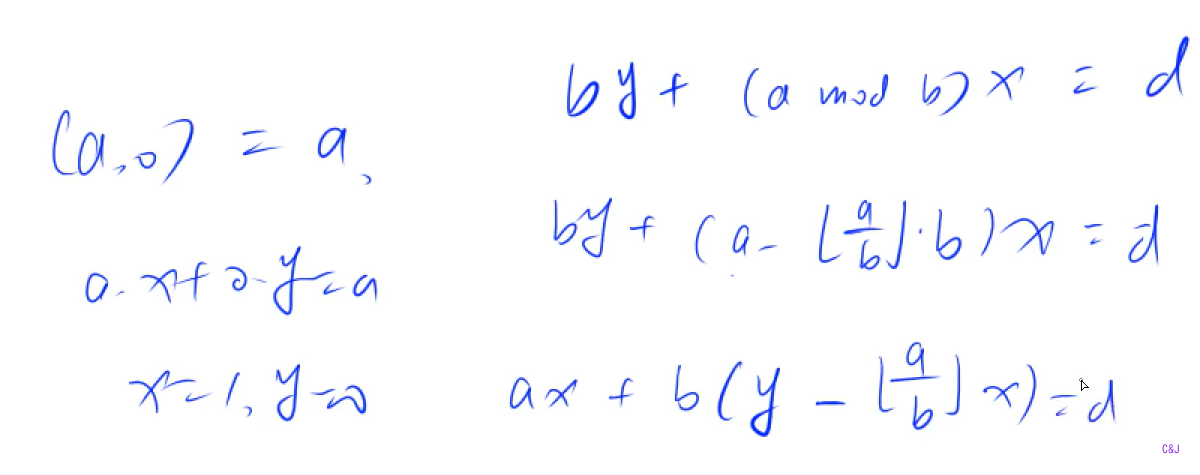 (a,0) = a,
a·x+0·y=a
x=1, y=0
by + (a mod b)x = d
by + (a - ⌊a/b⌋·b)x = d
ax + b(y - ⌊a/b⌋x) = d
C&J